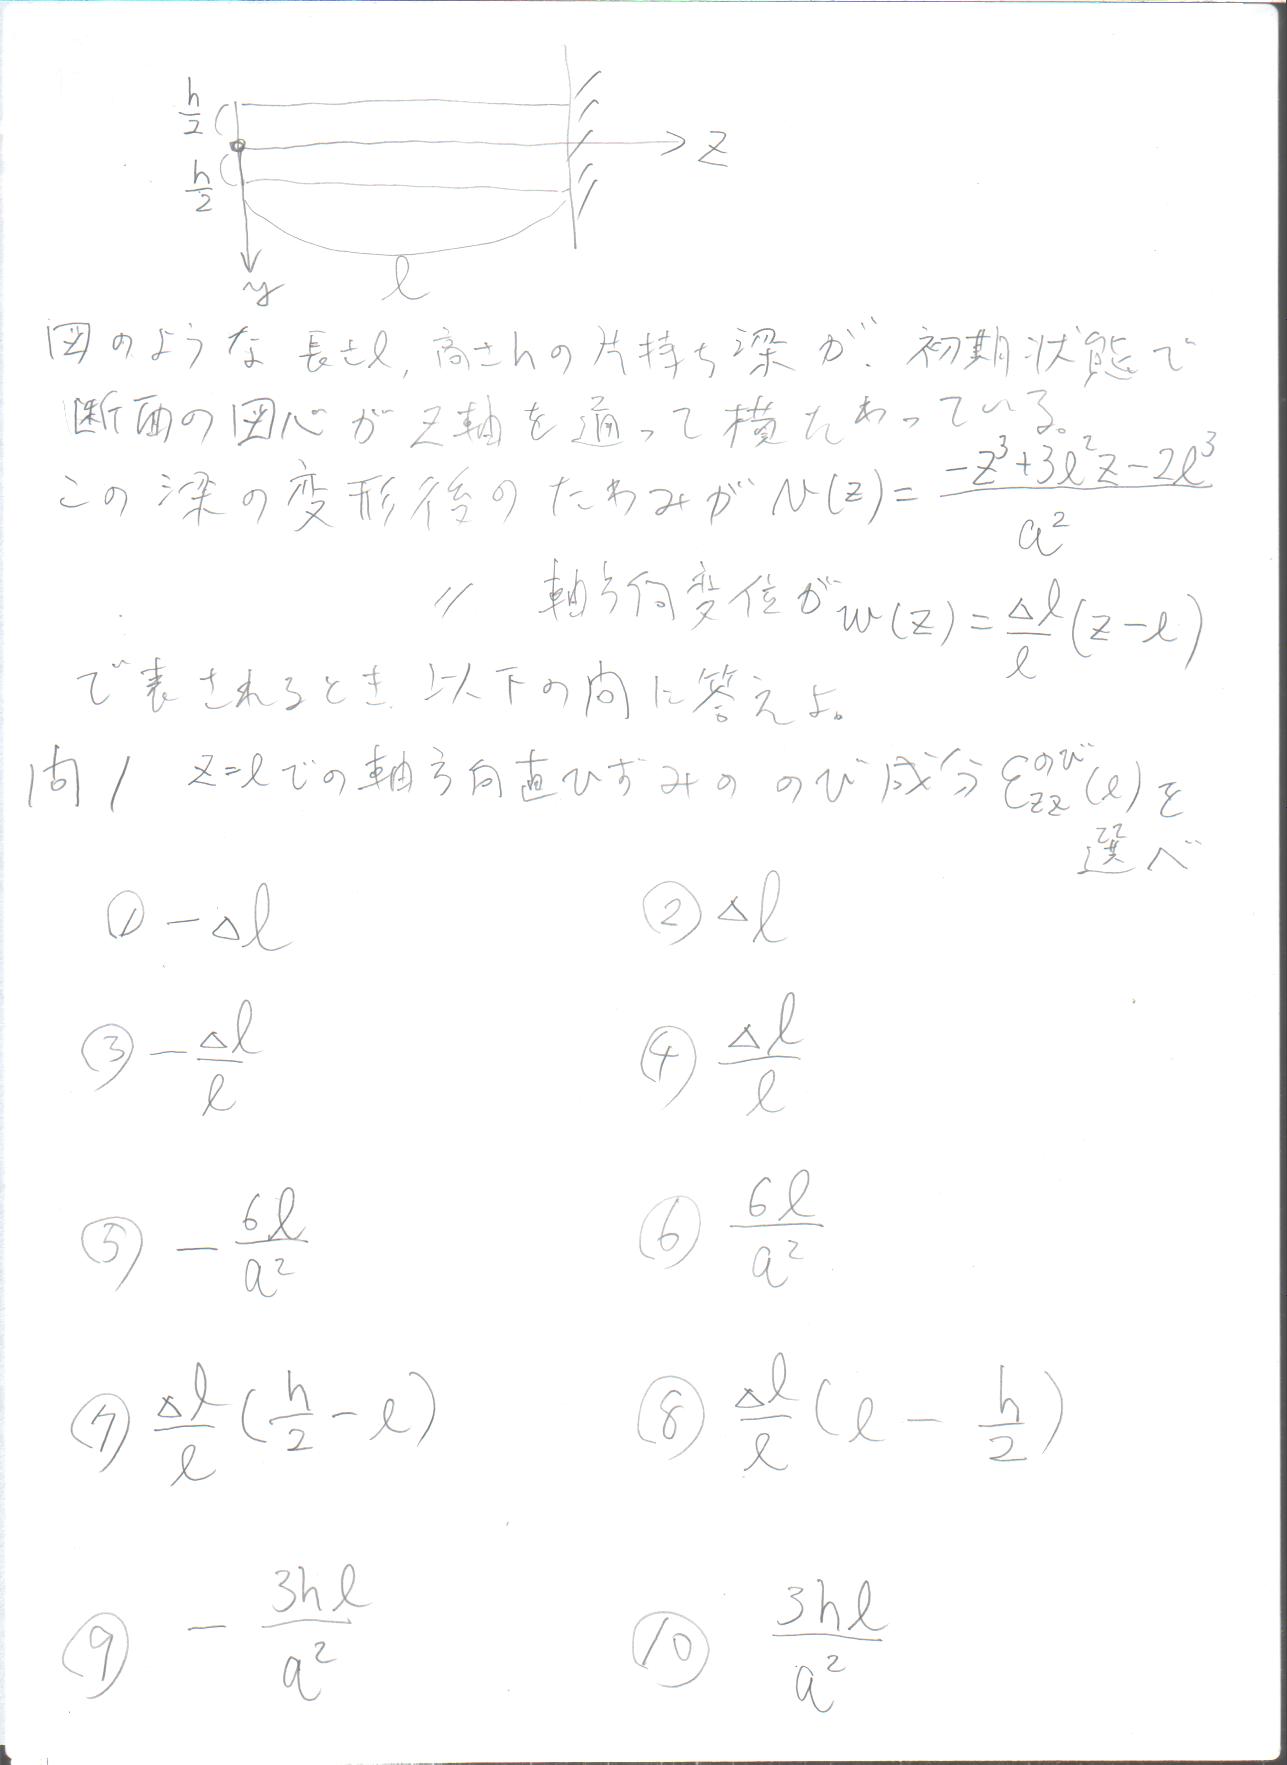 h/2
h/2
z
y
l
図のような長さl,高さhの片持ち梁が、初期状態で
断面の図心がz軸を通って横たわっている。
この梁の変形後のたわみがv(z)=(-z³+3l²z-2l³)/a²
〃 軸方向変位がw(z)=Δl/l(z-l)
で表されるとき、以下の問に答えよ。
問1 z=lでの軸方向直ひずみののび成分ε_zz^のび(l)を
選べ
① -Δl ② Δl
③ -Δl/l ④ Δl/l
⑤ -6l/a² ⑥ 6l/a²
⑦ Δl/l(h/2-l) ⑧ Δl/l(l-h/2)
⑨ -3hl/a² ⑩ 3hl/a²